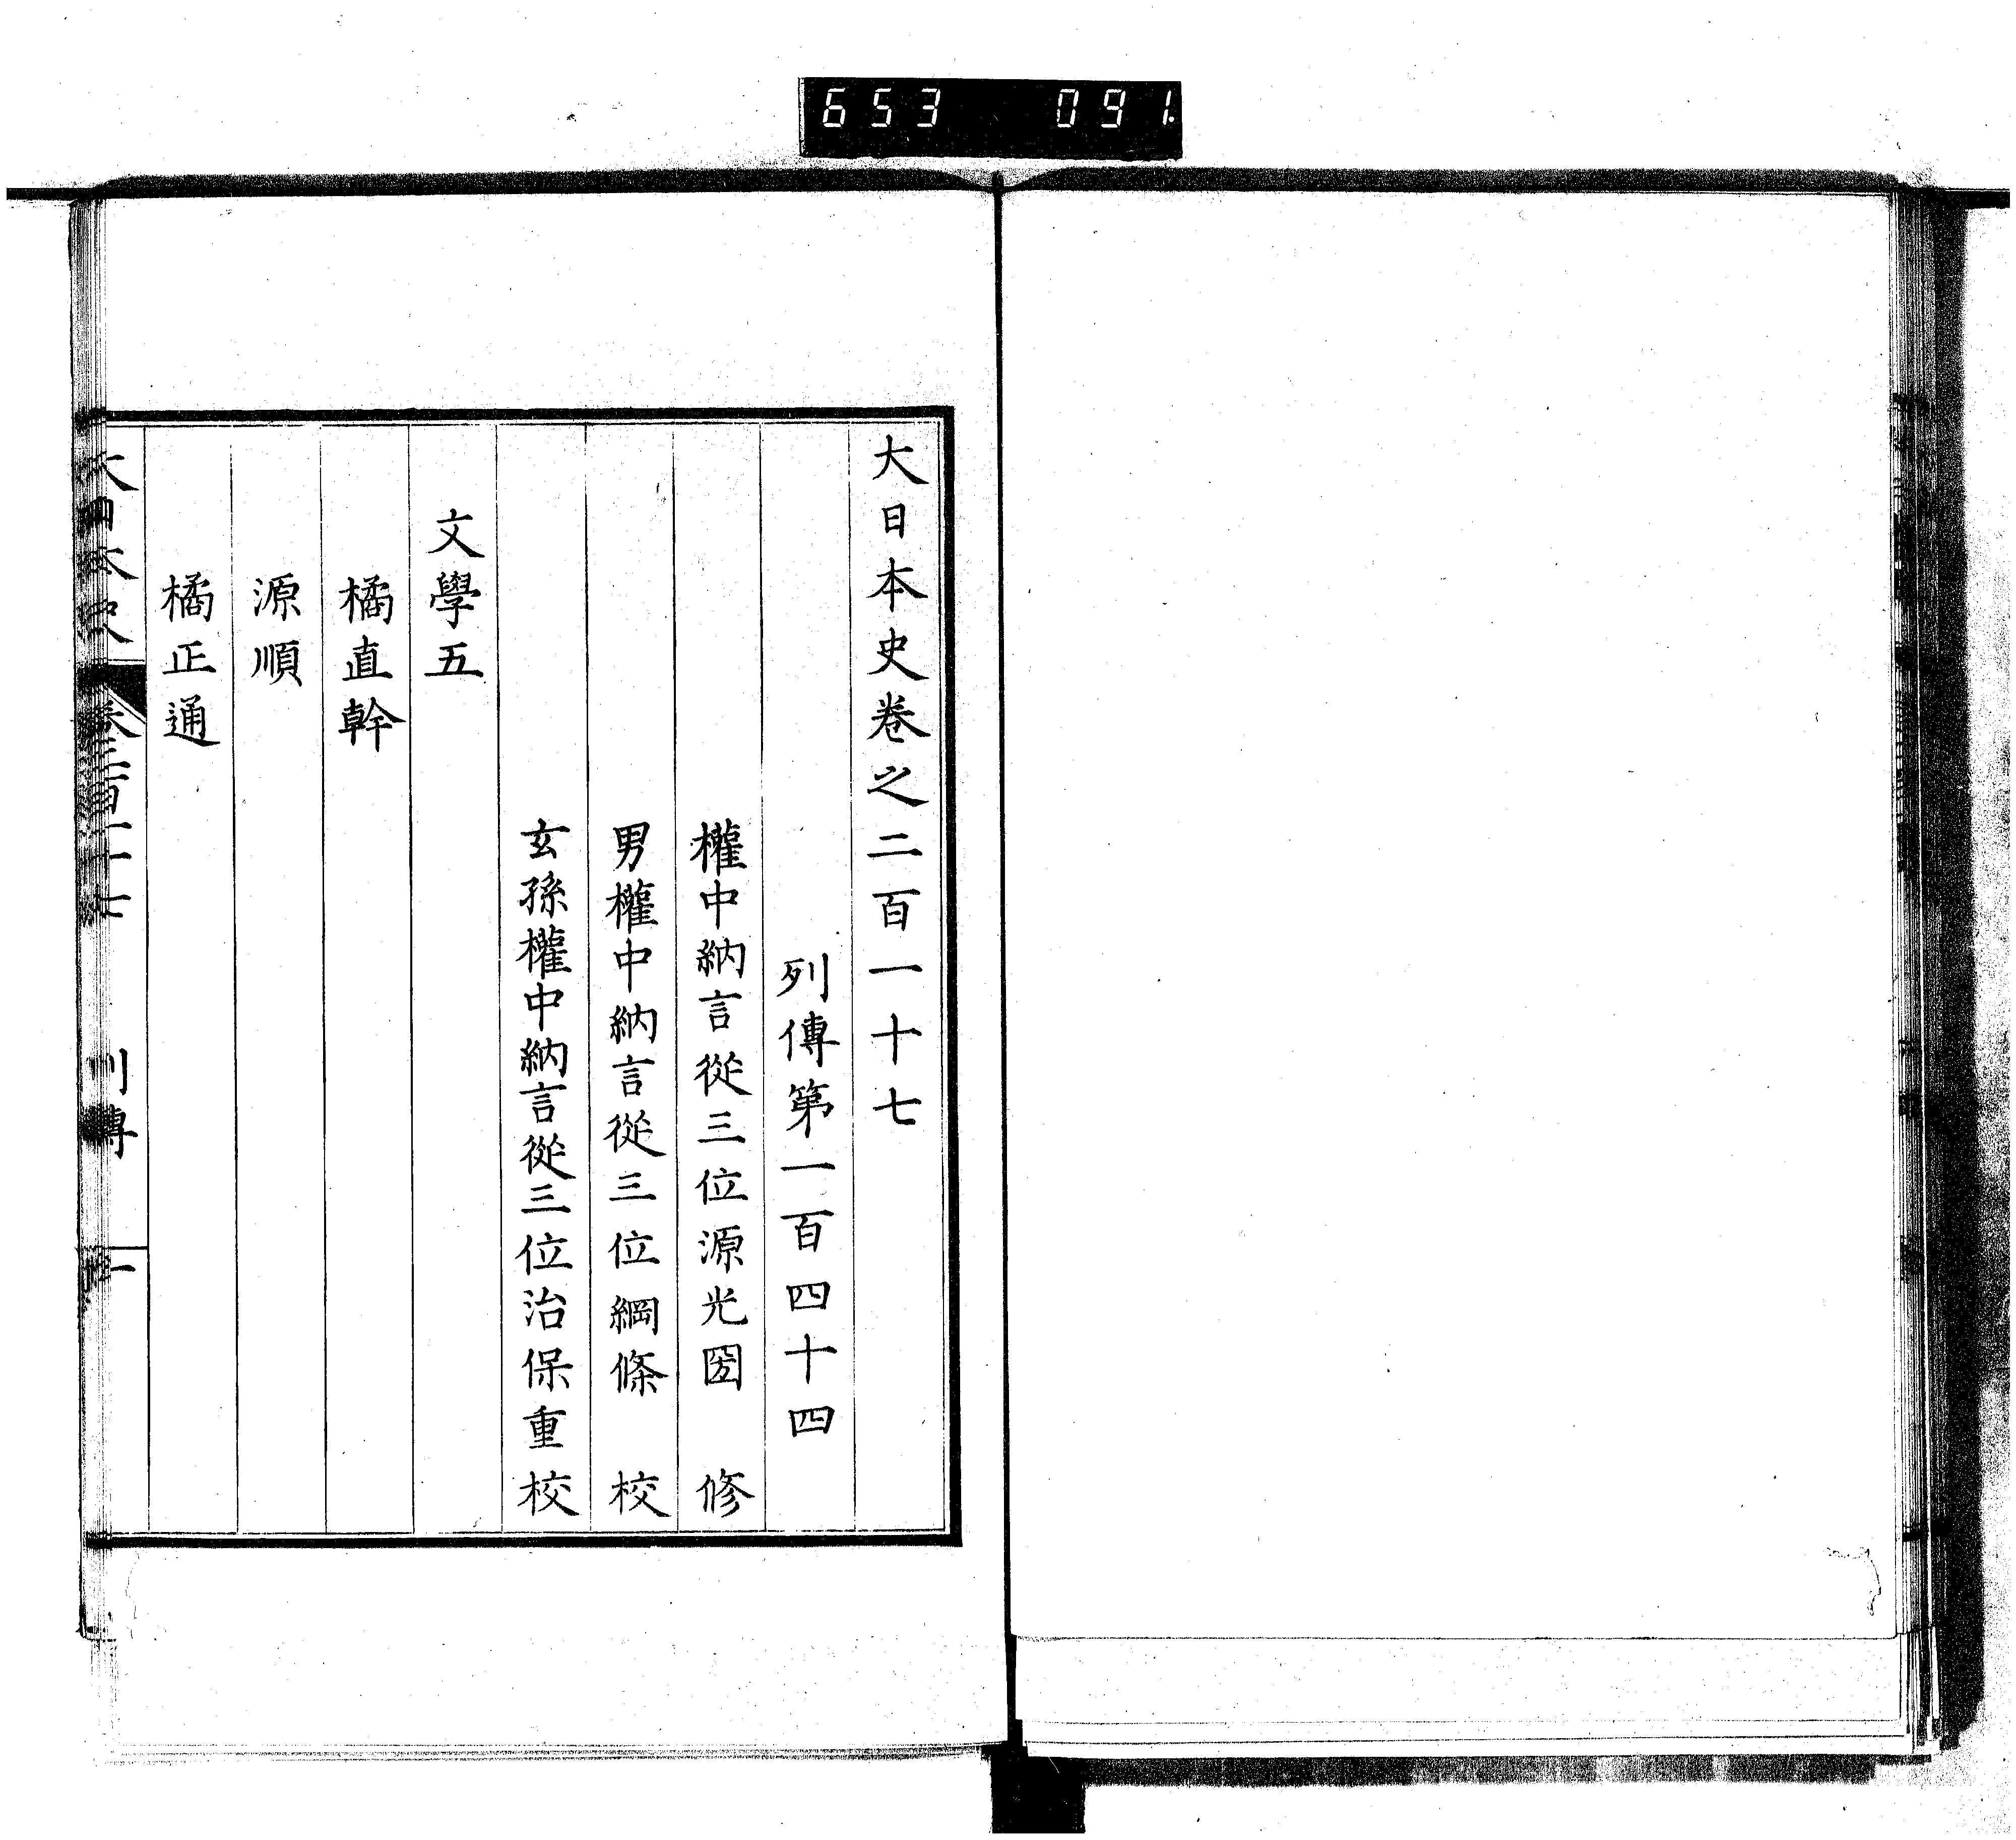 653 091
大日本史卷之二百一十七
列傳第一百四十四
權中納言從三位源光圀 修
男權中納言從三位綱條 校
玄孫權中納言從三位治保重校
文學五
橘直幹
源順
橘正通
大日本史 卷二百一十七 列傳 一